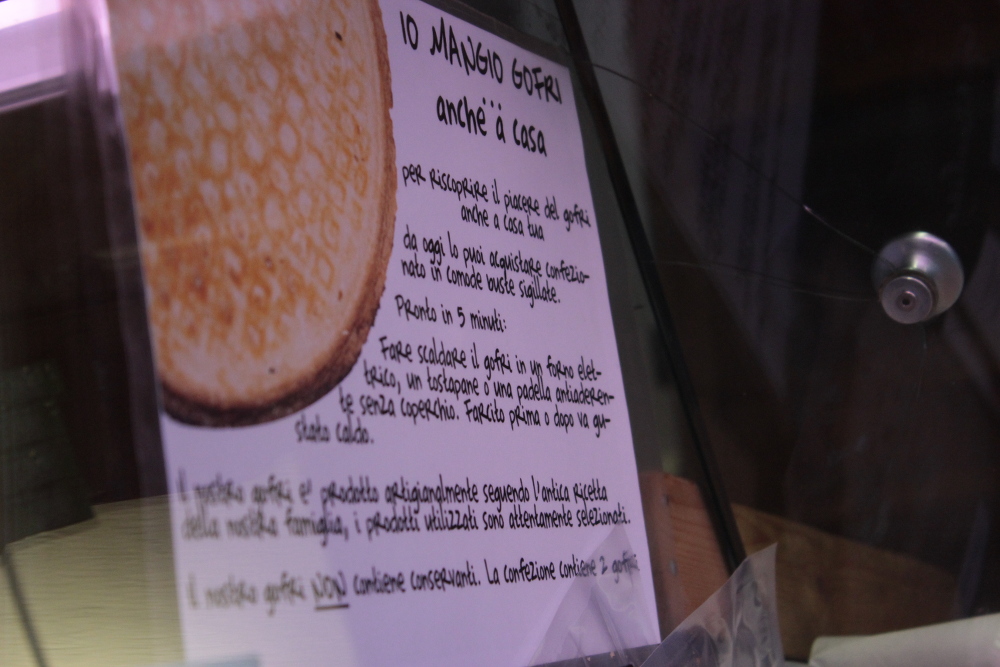 IO MANGIO GOFRI
anche...a casa
per riscoprire il piacere del gofri
anche a casa tua
da oggi lo puoi acquistare confezio-
nato in comode buste sigillate.
Pronto in 5 minuti:
Fare scaldare il gofri in un forno elet-
trico, un tostapane o una padella antiaderen-
te senza coperchio. Farcito prima o dopo va gu-
stato caldo.
Il nostro gofri e' prodotto artigianalmente seguendo l'antica ricetta
della nostra famiglia, i prodotti utilizzati sono attentamente selezionati.
Il nostro gofri NON contiene conservanti. La confezione contiene 2 gofri